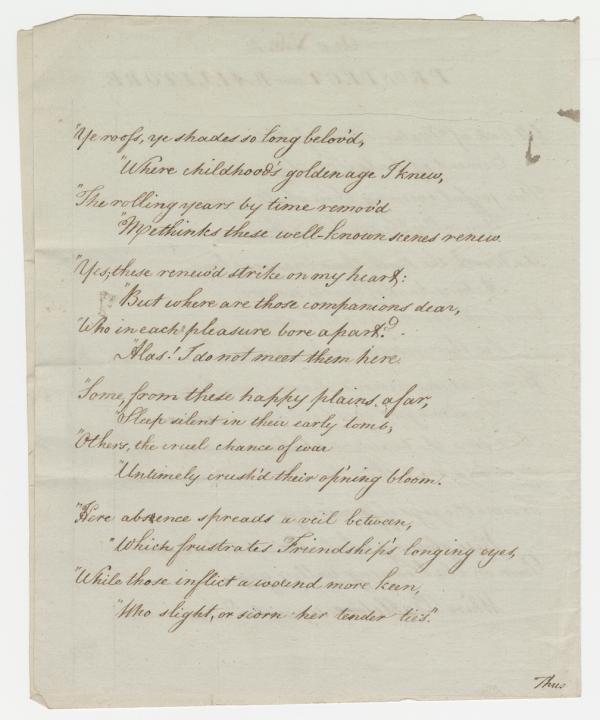 "Ye roofs, ye shades so long belov'd,
"Where childhood's golden age I knew,
"The rolling years by time remov'd
"Methinks these well-known scenes renew.
"Yes, these renew'd strike on my heart:
"But where are those companions dear,
"Who in each pleasure bore a part?
"Alas! I do not meet them here.
"Some, from these happy plains afar,
"Sleep silent in their early tomb,
"Others, the cruel chance of war
"Untimely crush'd their op'ning bloom.
"Here absence spreads a veil between,
"Which frustrates Friendship's longing eyes,
"While those inflict a wound more keen,
"Who slight, or scorn her tender ties".
Thus